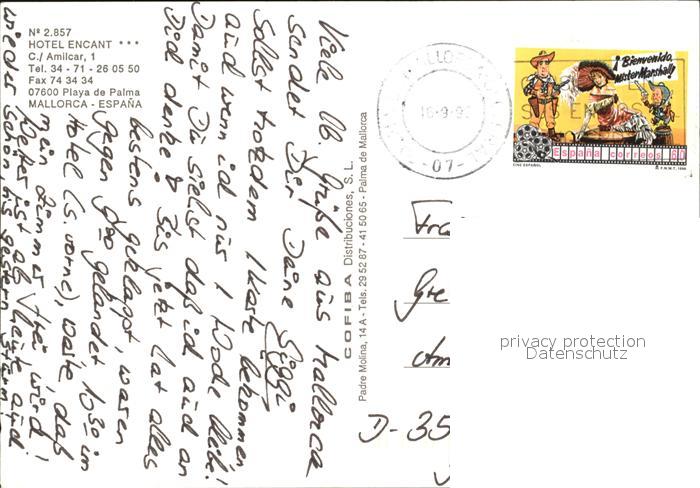 Nº 2.857
HOTEL ENCANT ***
C./ Amilcar, 1
Tel. 34 - 71 - 26 05 50
Fax 74 34 34
07600 Playa de Palma
MALLORCA - ESPAÑA
Viele lb. Grüße aus Mallorca
sendet Dir Deine Siggi
Sollst trotzdem 1 Karte bekommen
auch wenn ich nur 1 Woche bleib!
Damit Du siehst daß ich auch an
Dich denke! Bis jetzt hat alles
bestens geklappt, waren
gegen 9 gelandet 1030 im
Hotel (s. vorne), warte, daß
mein Zimmer frei wird!
Wetter ist ab heute auch
wieder schön, bis gestern Sturm!
COFIBA Distribuciones, S. L.
Padre Molina, 14 A - Tels. 29 52 87 - 41 50 65 - Palma de Mallorca
07
¡Bienvenido,
Mister Marshall!
España correos
CINE ESPAÑOL
F.N.M.T. 1996
Fra
Gre
Am
D-35
privacy protection
Datenschutz